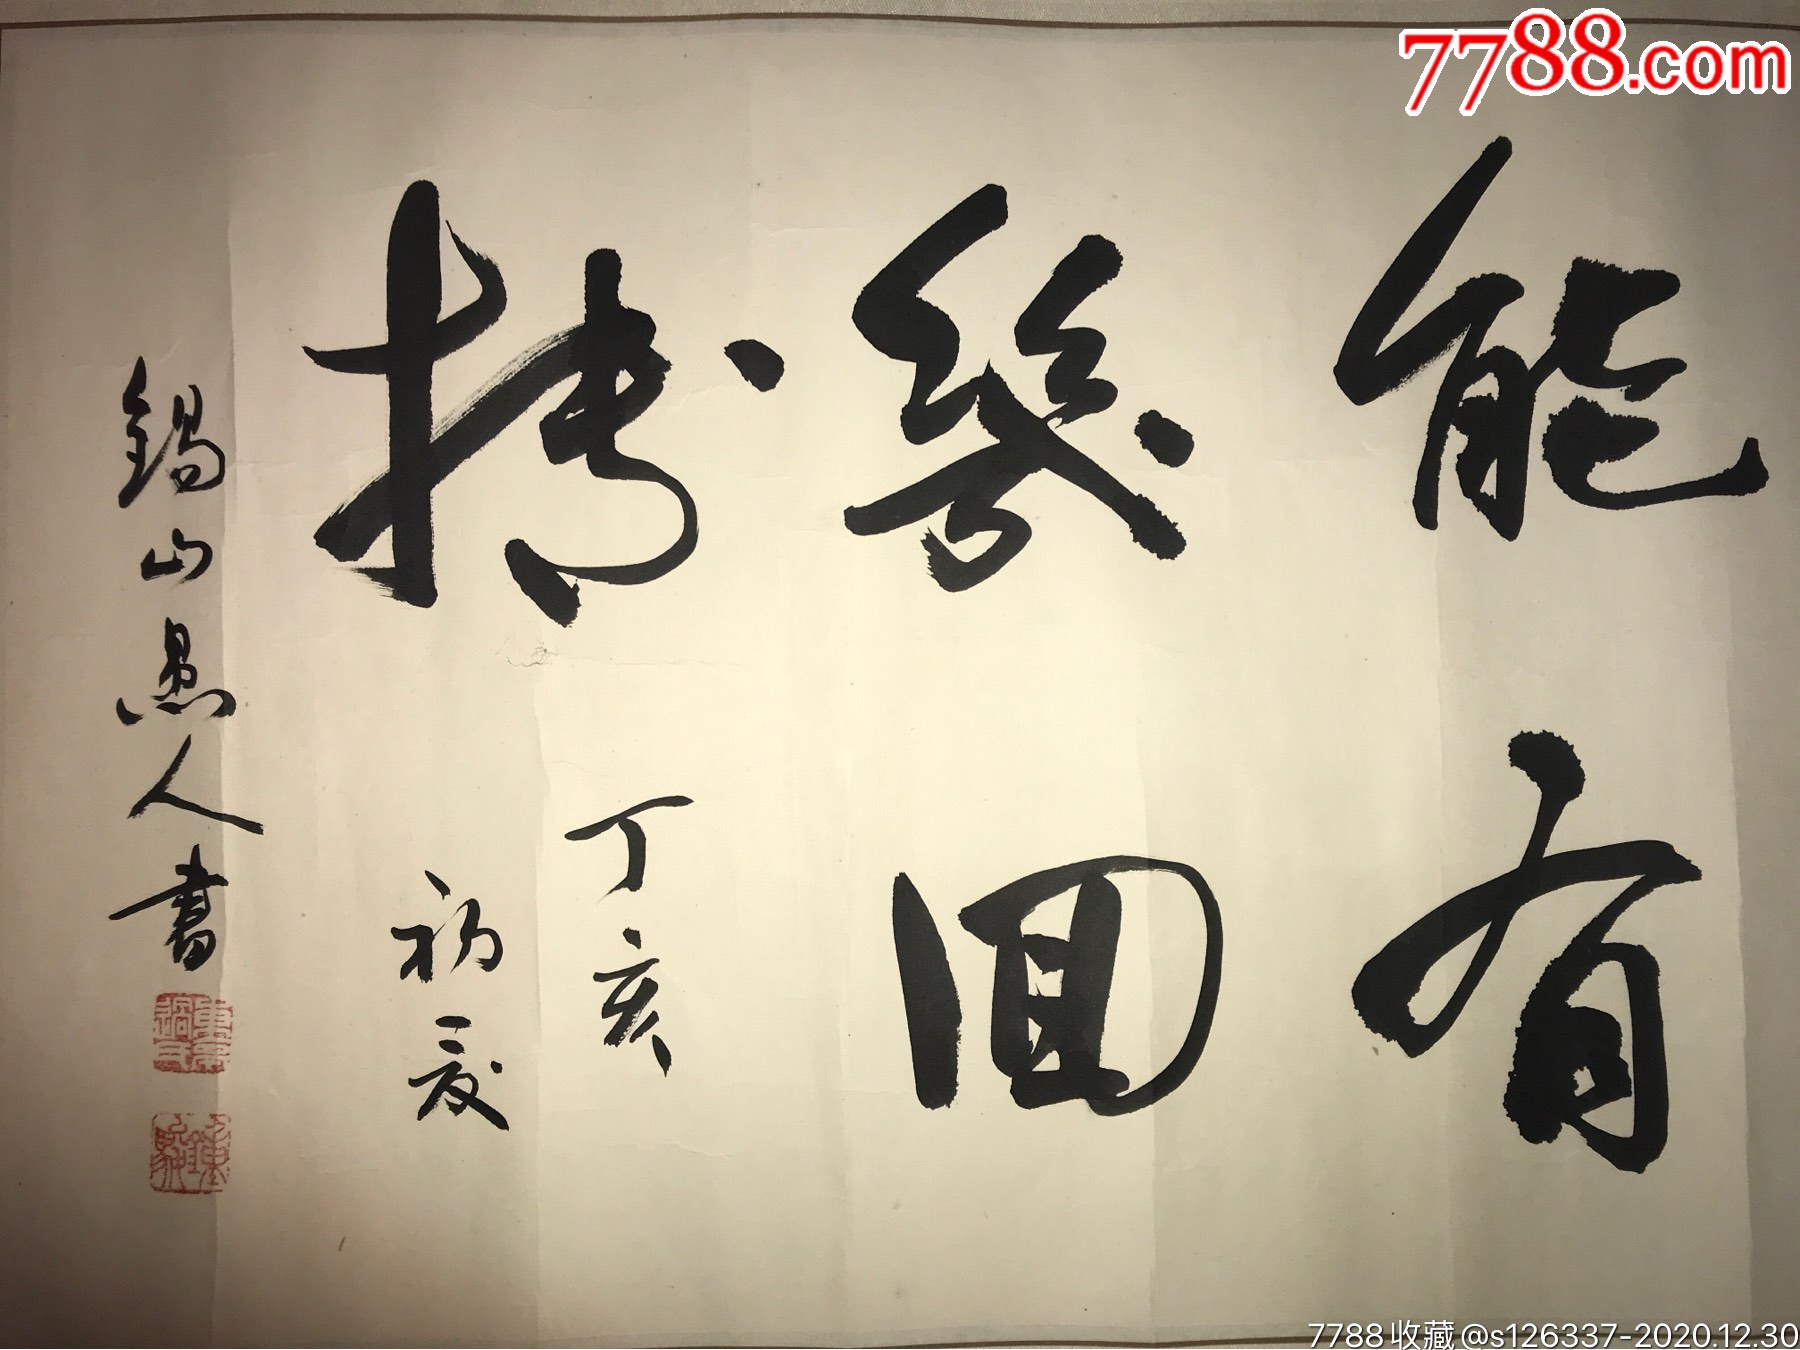 7788.com
能有
幾回
搏
丁亥
初夏
錫山愚人書
7788收藏@s126337-2020.12.30